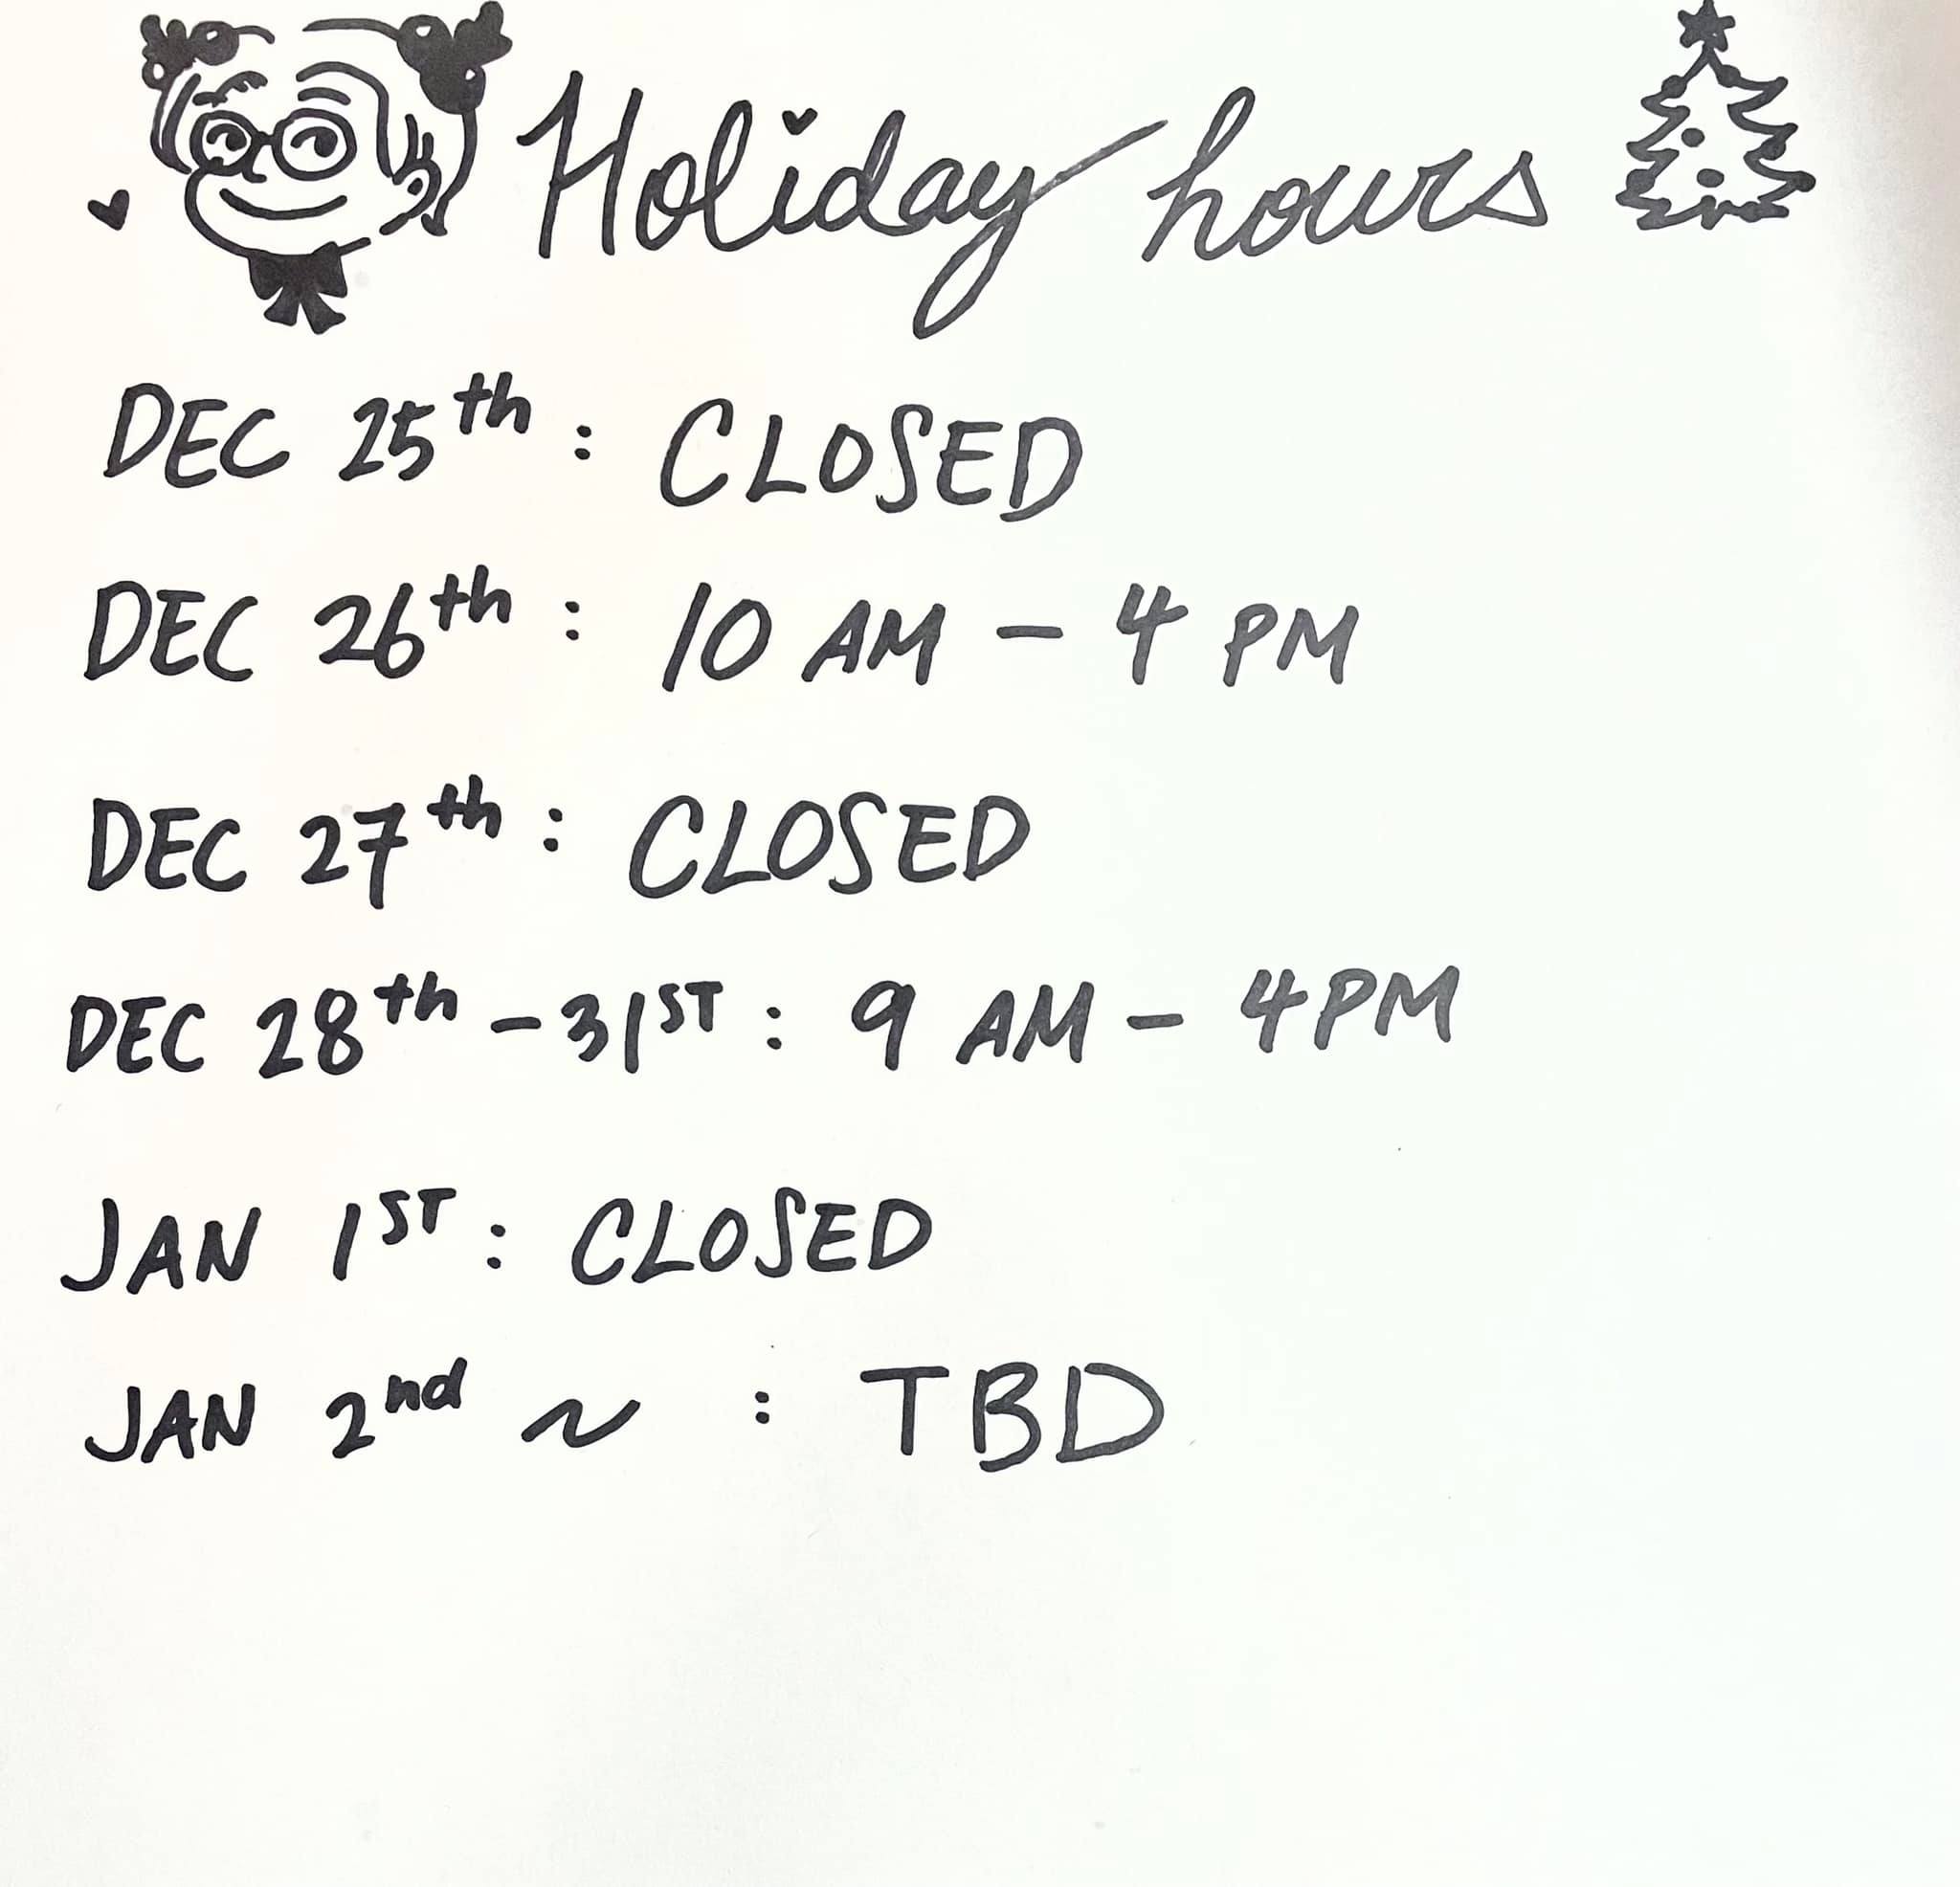 Holiday hours
DEC 25th : CLOSED
DEC 26th : 10 AM – 4 PM
DEC 27th : CLOSED
DEC 28th – 31ST : 9 AM – 4PM
JAN 1ST : CLOSED
JAN 2nd ~ : TBD